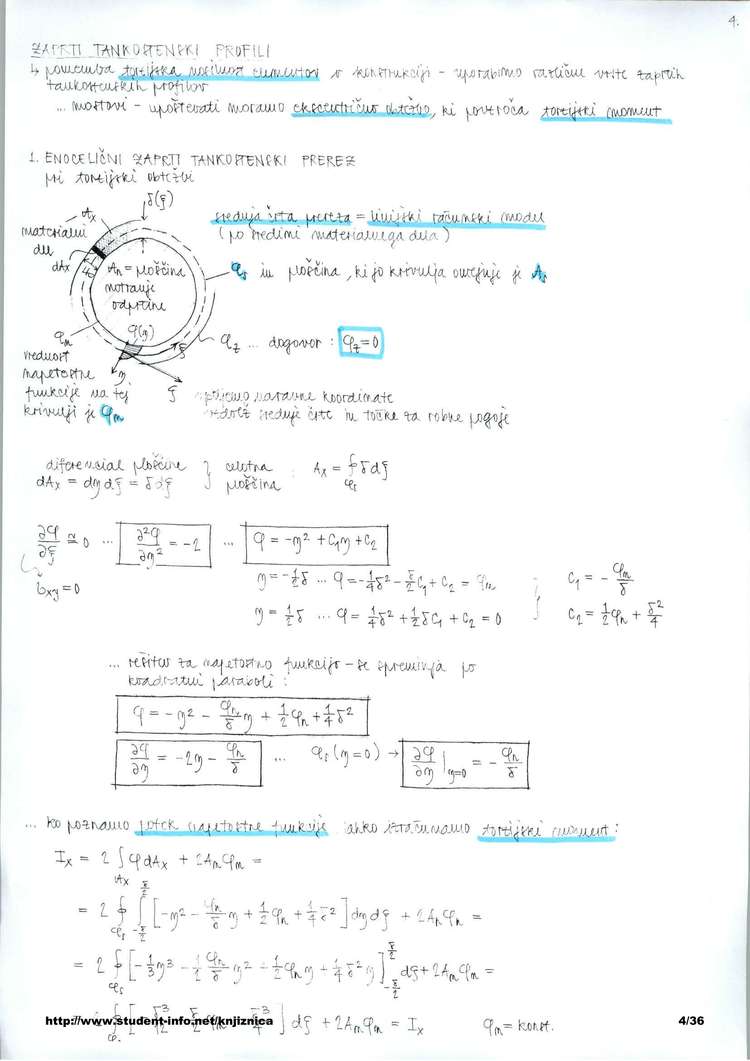 4.
ZAPRTI TANKOSTENSKI PROFILI
↳ pomembna torzijska nosilnost elementov v konstrukciji - uporabimo različne vrste zaprtih
tankostenskih profilov
... mostovi - upoštevati moramo ekscentrično obtežbo, ki povzroča torzijski moment
1. ENOCELIČNI ZAPRTI TANKOSTENSKI PREREZ
pri torzijski obtežbi
Ax δ(ξ)
materialni
del
dAx
An = ploščina
notranje
odprtine
φn
φ(η)
η
ξ
vrednost
napetostne
funkcije na tej
krivulji je φn
srednja črta prereza = linijski računski model
(po sredini materialnega dela)
φs in ploščina, ki jo krivulja omejuje je As
φz ... dogovor: φz=0
naravne koordinate
vzdolž srednje črte in točke za robne pogoje
diferencial ploščine } celotna : Ax = ∮ δdξ
dAx = dηdξ = δdξ ploščina φs
∂φ/∂ξ ≅ 0 ... ∂²φ/∂η² = -2 ... φ = -η² + C₁η + C₂
σxy = 0
η = -½δ ... φ = -¼δ² - δ/2 C₁ + C₂ = φn C₁ = - φn/δ
η = ½δ ... φ = ¼δ² + ½δC₁ + C₂ = 0 C₂ = ½φn + δ²/4
... rešitev za napetostno funkcijo - se spreminja po
kvadratni paraboli:
φ = -η² - φn/δ η + ½φn + ¼δ²
∂φ/∂η = -2η - φn/δ ... φs (η=0) → ∂φ/∂η |η=0 = - φn/δ
... ko poznamo potek napetostne funkcije lahko izračunamo torzijski moment:
Ix = 2 ∫ φdAx + 2Anφn =
Ax
= 2 ∮ ∫ [-η² - φn/δ η + ½φn + ¼δ²] dηdξ + 2Anφn =
= 2 ∮ [-⅓η³ - ½ φn/δ η² + ½φnη + ¼δ²η] dξ + 2Anφn =
dξ + 2Anφn = Ix φn = konst.
http://www.student-info.net/knjiznica
4/36